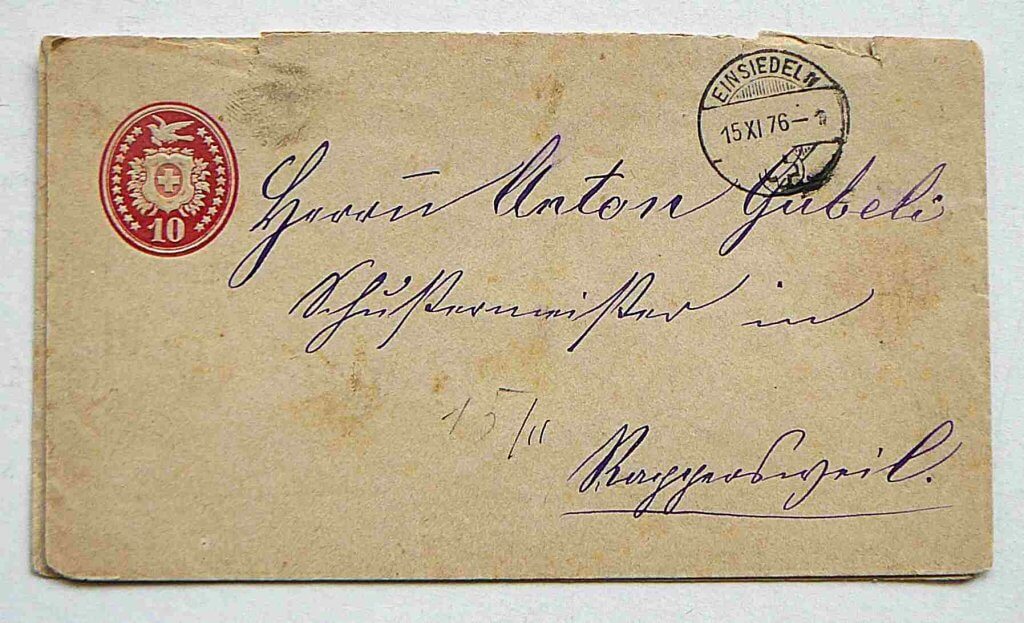 EINSIEDELN
15 XI 76 – 1
10
Herrn Anton Gübeli
Schustermeister in
15/11
Rappersweil.